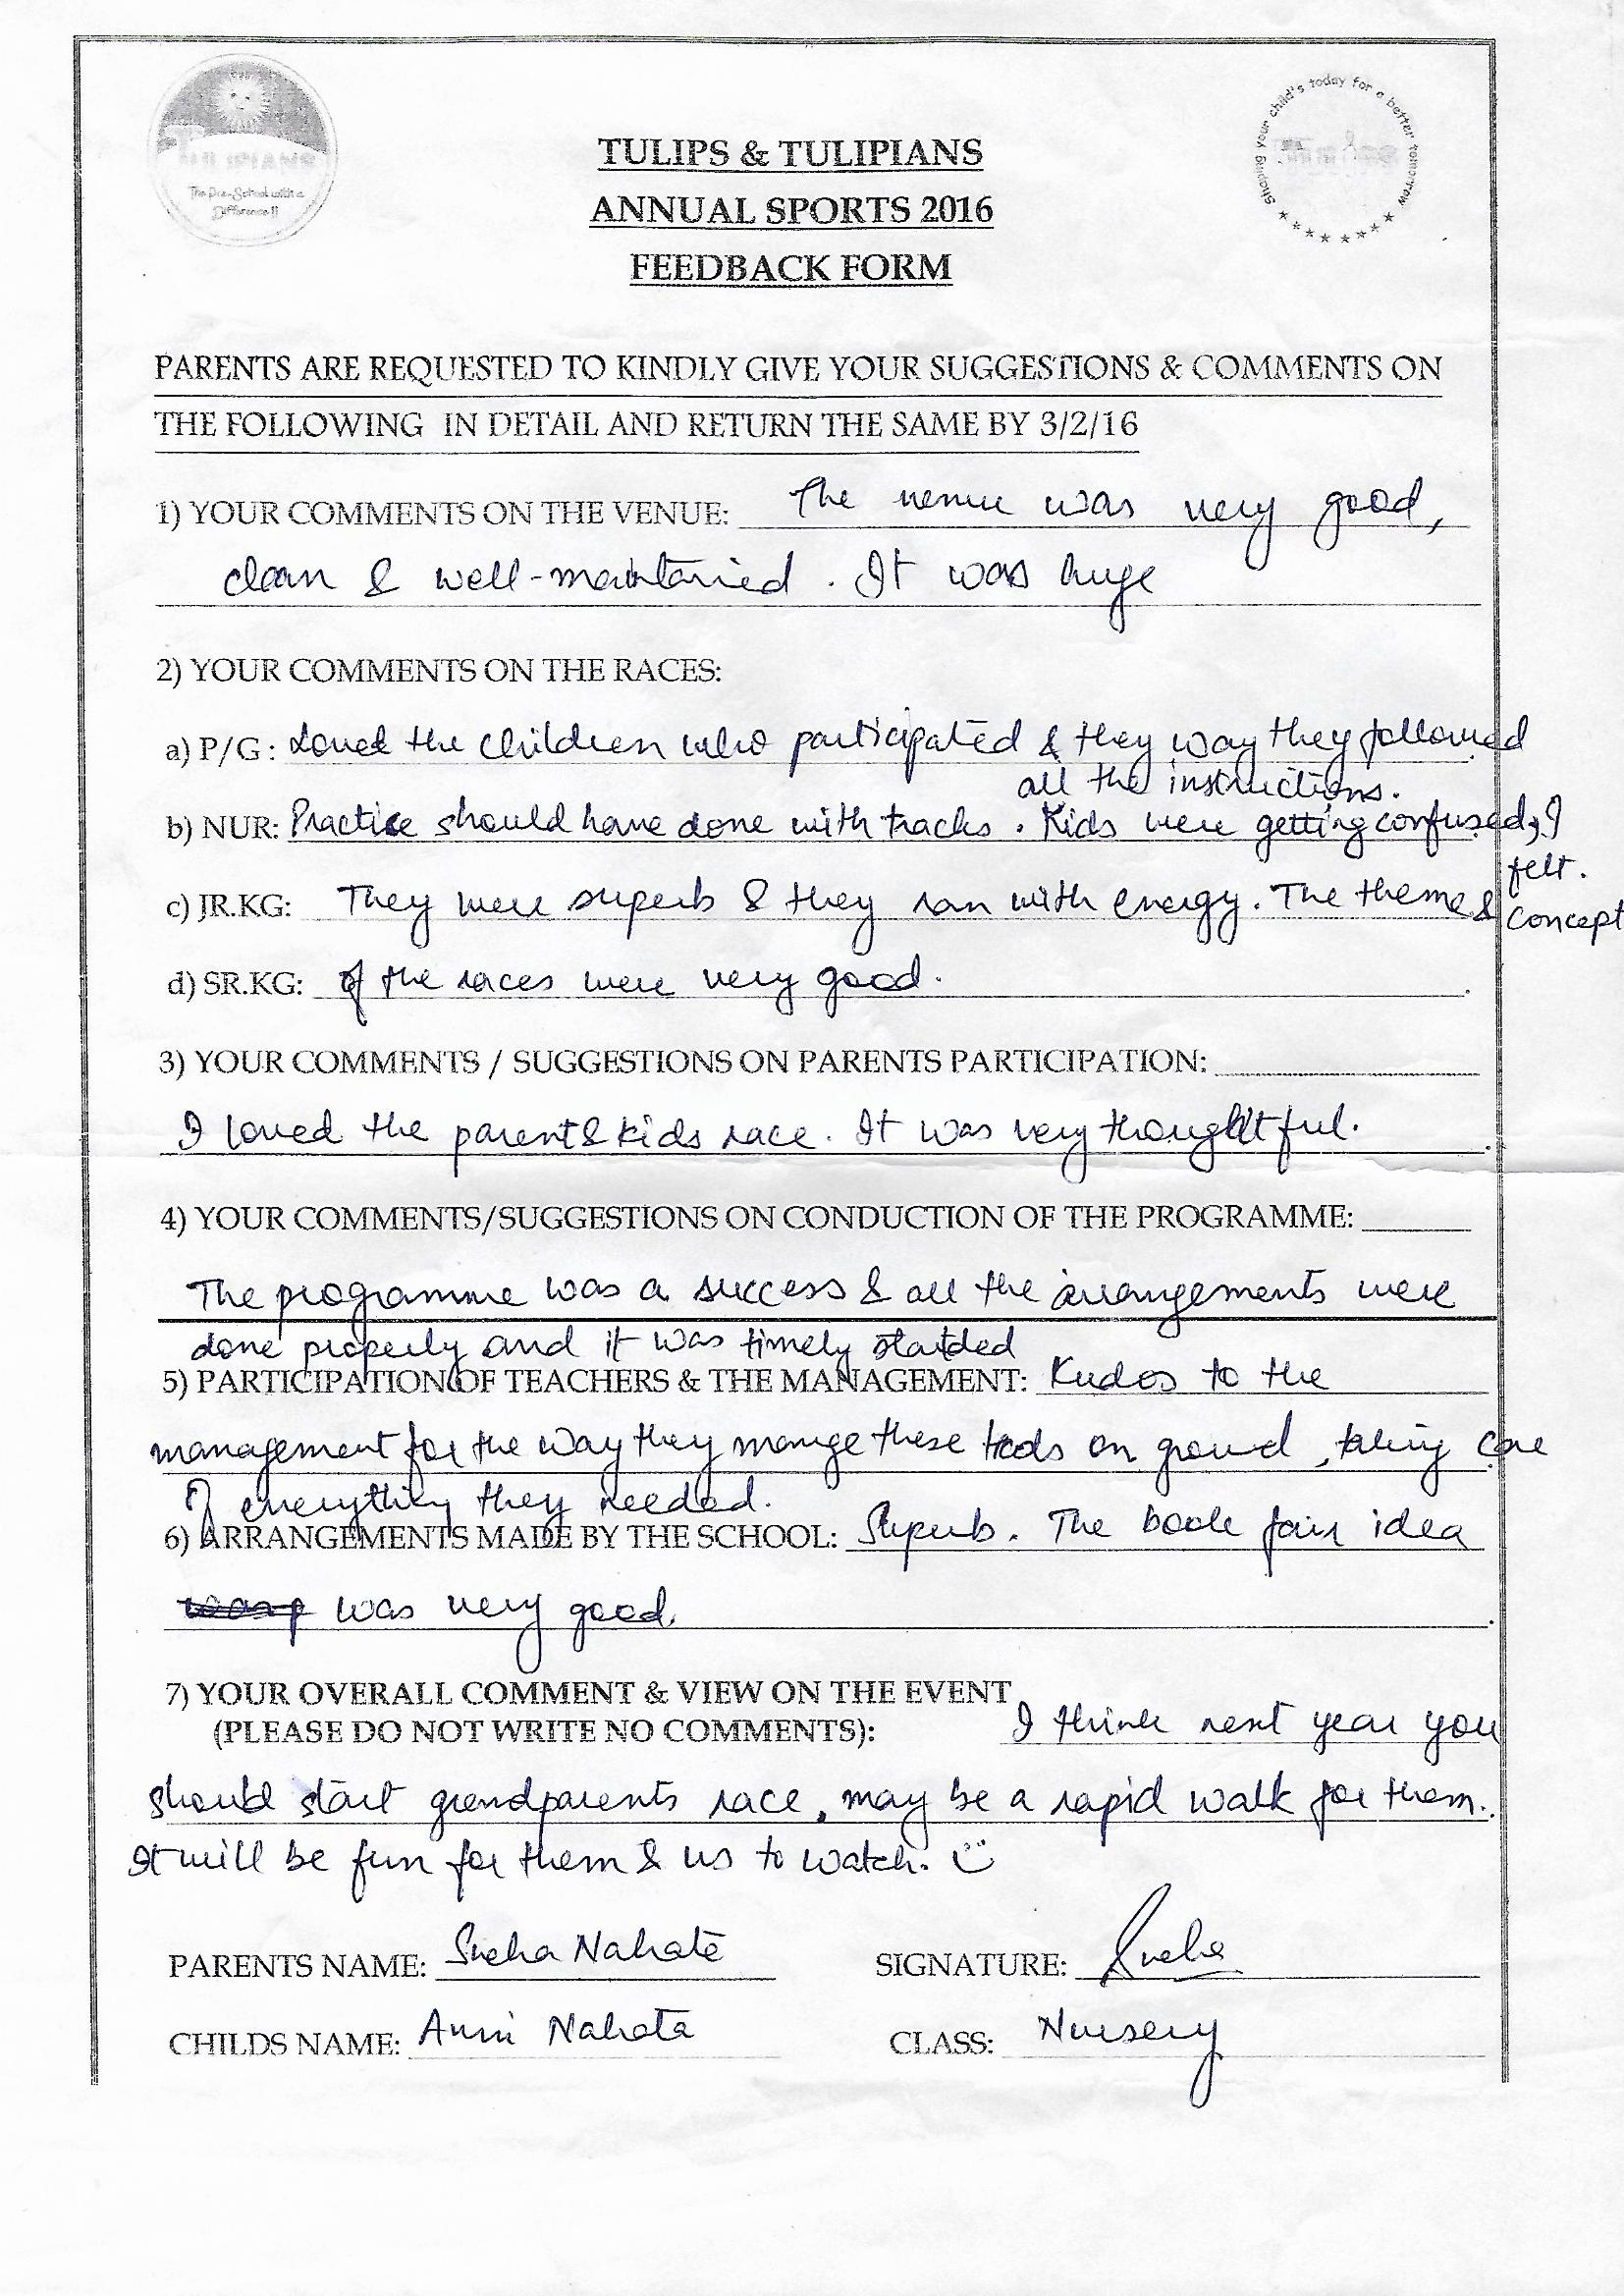 TULIPIANS
The Pre-School with a
Difference!!
Shaping your child's today for a better tomorrow
TULIPS & TULIPIANS
ANNUAL SPORTS 2016
FEEDBACK FORM
PARENTS ARE REQUESTED TO KINDLY GIVE YOUR SUGGESTIONS & COMMENTS ON
THE FOLLOWING IN DETAIL AND RETURN THE SAME BY 3/2/16
1) YOUR COMMENTS ON THE VENUE: The venue was very good,
clean & well-maintained. It was huge
2) YOUR COMMENTS ON THE RACES:
a) P/G: Loved the children who participated & they way they followed
all the instructions.
b) NUR: Practice should have done with tracks. Kids were getting confused, I
felt.
c) JR.KG: They were superb & they ran with energy. The theme & concept
d) SR.KG: of the races were very good.
3) YOUR COMMENTS / SUGGESTIONS ON PARENTS PARTICIPATION:
I loved the parent & kids race. It was very thoughtful.
4) YOUR COMMENTS/SUGGESTIONS ON CONDUCTION OF THE PROGRAMME:
The programme was a success & all the arrangements were
done properly and it was timely started
5) PARTICIPATION OF TEACHERS & THE MANAGEMENT: Kudos to the
management for the way they mange these kids on ground, taking care
of everything they needed.
6) ARRANGEMENTS MADE BY THE SCHOOL: Superb. The book fair idea
was very good.
7) YOUR OVERALL COMMENT & VIEW ON THE EVENT
(PLEASE DO NOT WRITE NO COMMENTS): I think next year you
should start grandparents race, may be a rapid walk for them.
It will be fun for them & us to watch.
PARENTS NAME: Sneha Nahata SIGNATURE: Sneha
CHILDS NAME: Nahata CLASS: Nursery